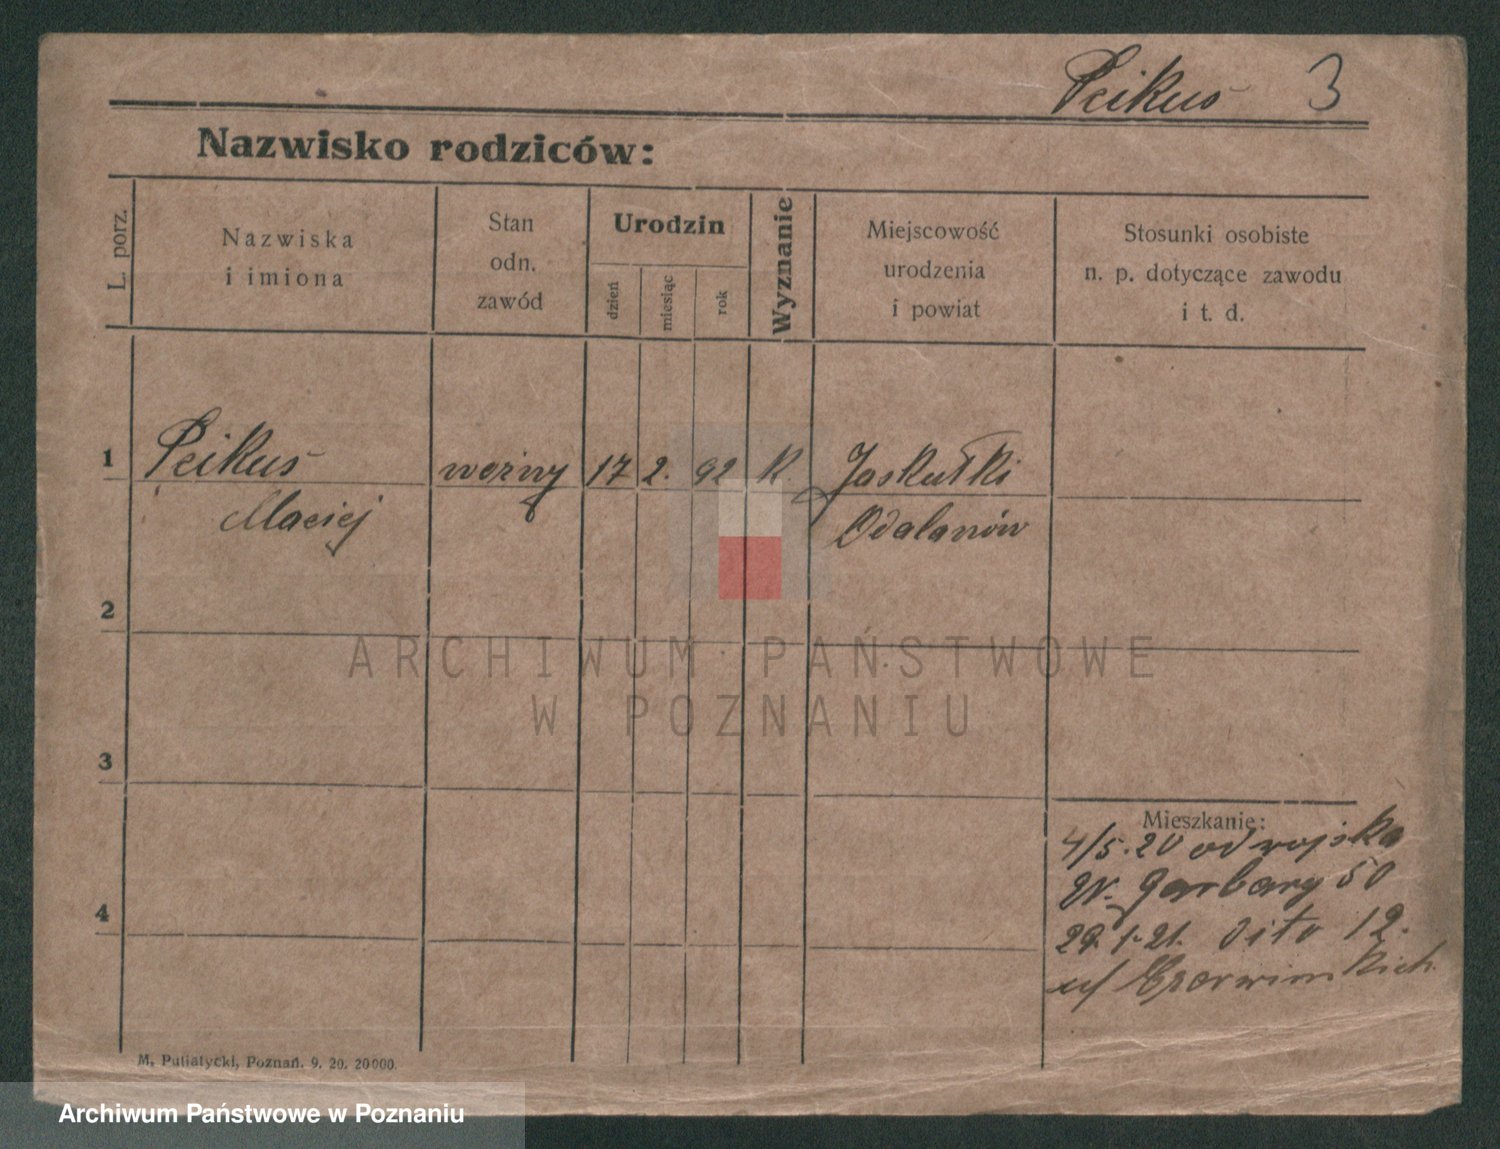 Peikus 3
Nazwisko rodziców:
L. porz.
Nazwiska
i imiona
Stan
odn.
zawód
Urodzin
dzień
miesiąc
rok
Wyznanie
Miejscowość
urodzenia
i powiat
Stosunki osobiste
n. p. dotyczące zawodu
i t. d.
1 Peikus woźny 17 2. 92 K. Jaskułki
Maciej Odalanów
2
ARCHIWUM PAŃSTWOWE
W POZNANIU
3
Mieszkanie:
4/5.20 od wojska
W. Garbary 50
4
29.1.21. dito 12.
M. Putiatycki, Poznań. 9. 20. 20000.
Archiwum Państwowe w Poznaniu